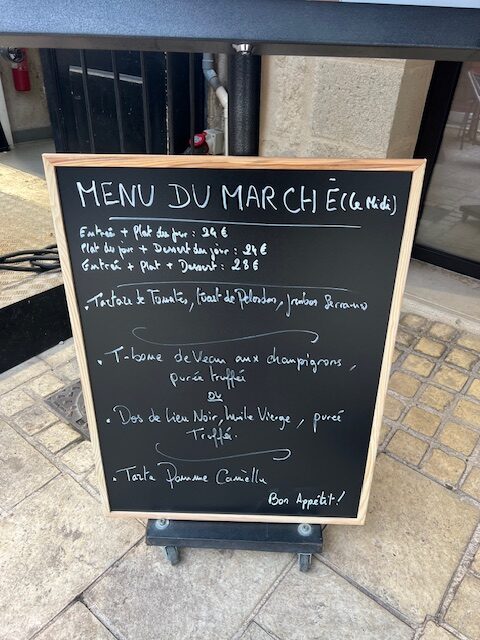 MENU DU MARCHÉ (Le Midi)
Entrée + Plat du jour : 24 €
Plat du jour + Dessert du jour : 24 €
Entrée + Plat + Dessert : 28 €
. Tartare de Tomates, toast de Pélardon, jambon Serrano
. T-bone de Veau aux champignons,
purée truffée
OU
. Dos de Lieu Noir, huile Vierge, pureé
Truffé.
. Tarte Pomme Cannelle
Bon Appétit !